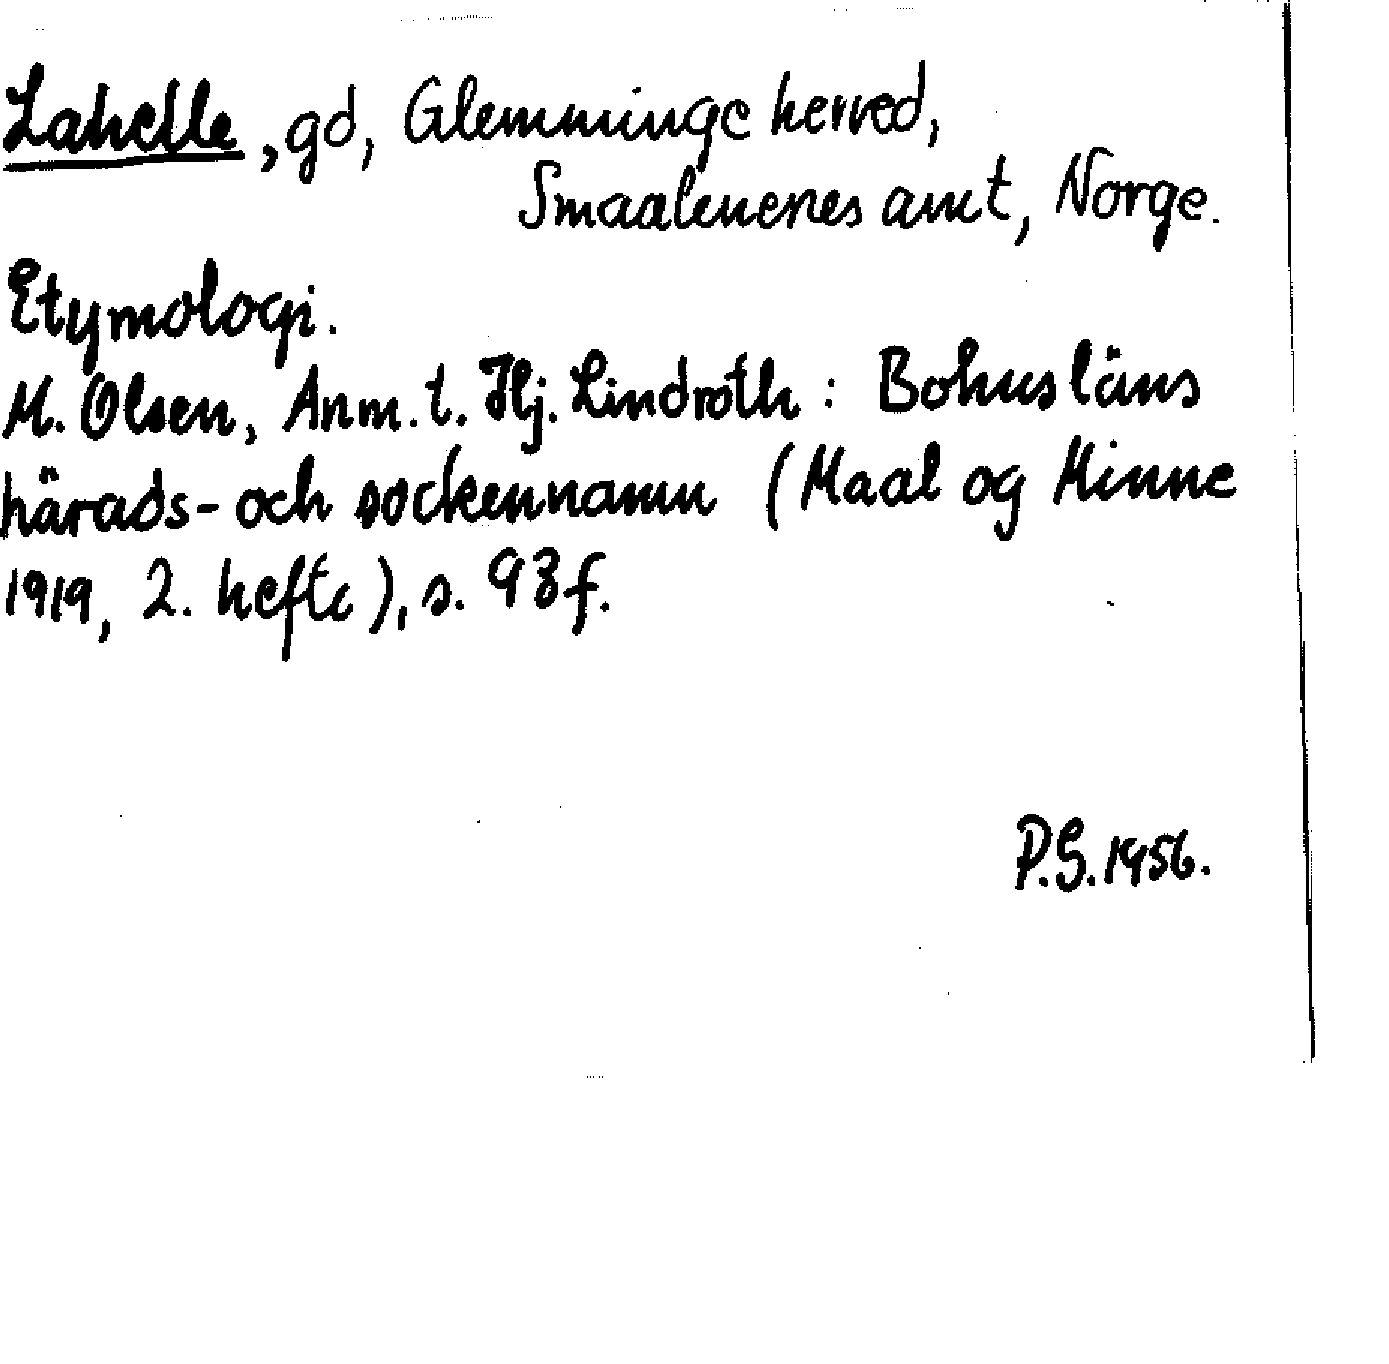 Lahelle, gd, Glemminge herred,
Smaalenenes amt, Norge.
Etymologi.
M. Olsen, Anm. t. Hj. Lindroth: Bohusläns
härads- och sockennamn (Maal og Minne
1919, 2. hefte), s. 93f.
P.G. 1956.